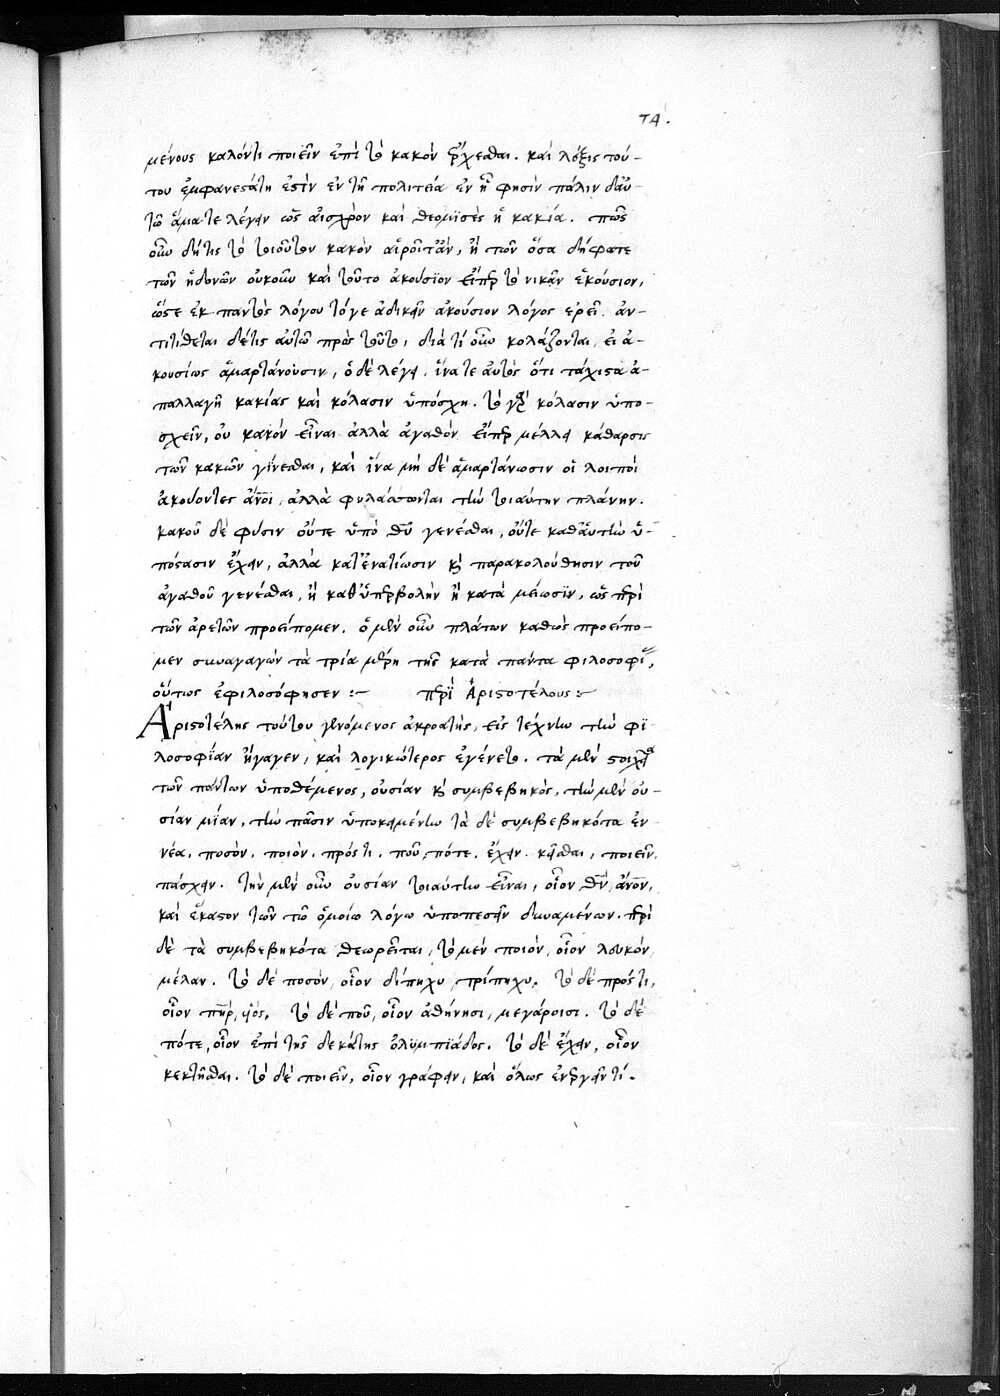 τα΄.
μένους καλόν τι ποιεῖν ἐπὶ τὸ κακὸν ἔρχεσθαι. καὶ λέξις τού-
του ἐμφανεστάτη ἐστὶν ἐν τῇ πολιτεία ἐν ἧ φησὶν πάλιν δ' αὖ
τῶ ἅμα τε λέγειν ὡς αἰσχρὸν καὶ θεομισὲς ἡ κακία. πῶς
οὖν δή τις τὸ τοιοῦτον κακὸν αἱροῖτ' ἄν, ἢ τῶν ὅσα
τῶν ἡδονῶν οὐκοῦν καὶ τοῦτο ἀκούσϊον εἴπερ τὸ νικᾶν ἑκούσιον,
ὥστε ἐκ παντὸς λόγου τό γε ἀδικεῖν ἀκούσιον λόγος ἐρεῖ. ἀν-
τιτίθεται δέ τις αὐτῶ πρὸς τοῦτο, διὰ τί οὖν κολάζονται, εἰ ἀ-
κουσίως ἁμαρτάνουσιν, ὁ δὲ λέγει. ἵνα τε αὐτὸς ὅτι τάχιστα ἀ-
παλλαγῆ κακίας καὶ κόλασιν ὑπόσχη. τὸ γὰρ κόλασιν ὑπο-
σχεῖν, οὐ κακὸν εἶναι ἀλλὰ ἀγαθὸν εἴπερ μέλλει κάθαρσις
τῶν κακῶν γίνεσθαι, καὶ ἵνα μὴ δὲ ἁμαρτάνωσιν οἱ λοιποὶ
ἀκούοντες ἄνοι, ἀλλὰ φυλάσσωνται τὴν τοιαύτην πλάνην.
κακοῦ δὲ φύσιν οὔτε ὑπὸ θῦ γενέσθαι, οὔτε καθ' αὑτὴν ὑ-
πόστασιν ἔχειν, ἀλλὰ κατ' ἐναντίωσιν καὶ παρακολούθησιν τοῦ
ἀγαθοῦ γενέσθαι, ἢ καθ' ὑπερβολὴν ἢ κατὰ μείωσϊν, ὡς περὶ
τῶν ἀρετῶν προείπομεν. ὁ μὲν οὖν πλάτων καθὼς προείπο-
μεν συναγαγὼν τὰ τρία μέρη τῆς κατὰ πάντα φιλοσοφί,
οὕτως ἐφιλοσόφησεν :~ περὶ Ἀριστοτέλους :~
Ἀριστοτέλης τούτου γενόμενος ἀκροατὴς, εἰς τέχνην τὴν φι-
λοσοφίαν ἤγαγεν, καὶ λογικώτερος ἐγένετο. τὰ μὲν στοιχεῖα
τῶν πάντων ὑποθέμενος, οὐσίαν καὶ συμβεβηκὸς, τὴν μὲν οὐ-
σίαν μίαν, τὴν πᾶσιν ὑποκειμένην τὰ δὲ συμβεβηκότα ἐν-
νέα. ποσὸν. ποιὸν. πρός τι. ποῦ, πότε. ἔχειν. κεῖσθαι, ποιεῖν.
πάσχειν. τὴν μὲν οὖν οὐσίαν τοιαύτην εἶναι, οἷον θν, ἄνον,
καὶ ἕκαστον τῶν τῶ ὁμοίω λόγω ὑποπεσεῖν δυναμένων. περὶ
δὲ τὰ συμβεβηκότα θεωρεῖται, τὸ μὲν ποιὸν, οἷον λευκὸν,
μέλαν. τὸ δὲ ποσὸν, οἷον δίπηχυ, τρίπηχυ. τὸ δὲ πρός τι,
οἷον πηρ, υἱός. τὸ δὲ ποῦ, οἷον ἀθήνησι, μεγάροισι. τὸ δὲ
πότε, οἷον ἐπὶ τῆς δεκάτης ὀλυμπϊάδος. τὸ δὲ ἔχειν, οἷον
κεκτῆσθαι. τὸ δὲ ποιεῖν, οἷον γράφειν, καὶ ὅλως ἐνεργεῖν τί.